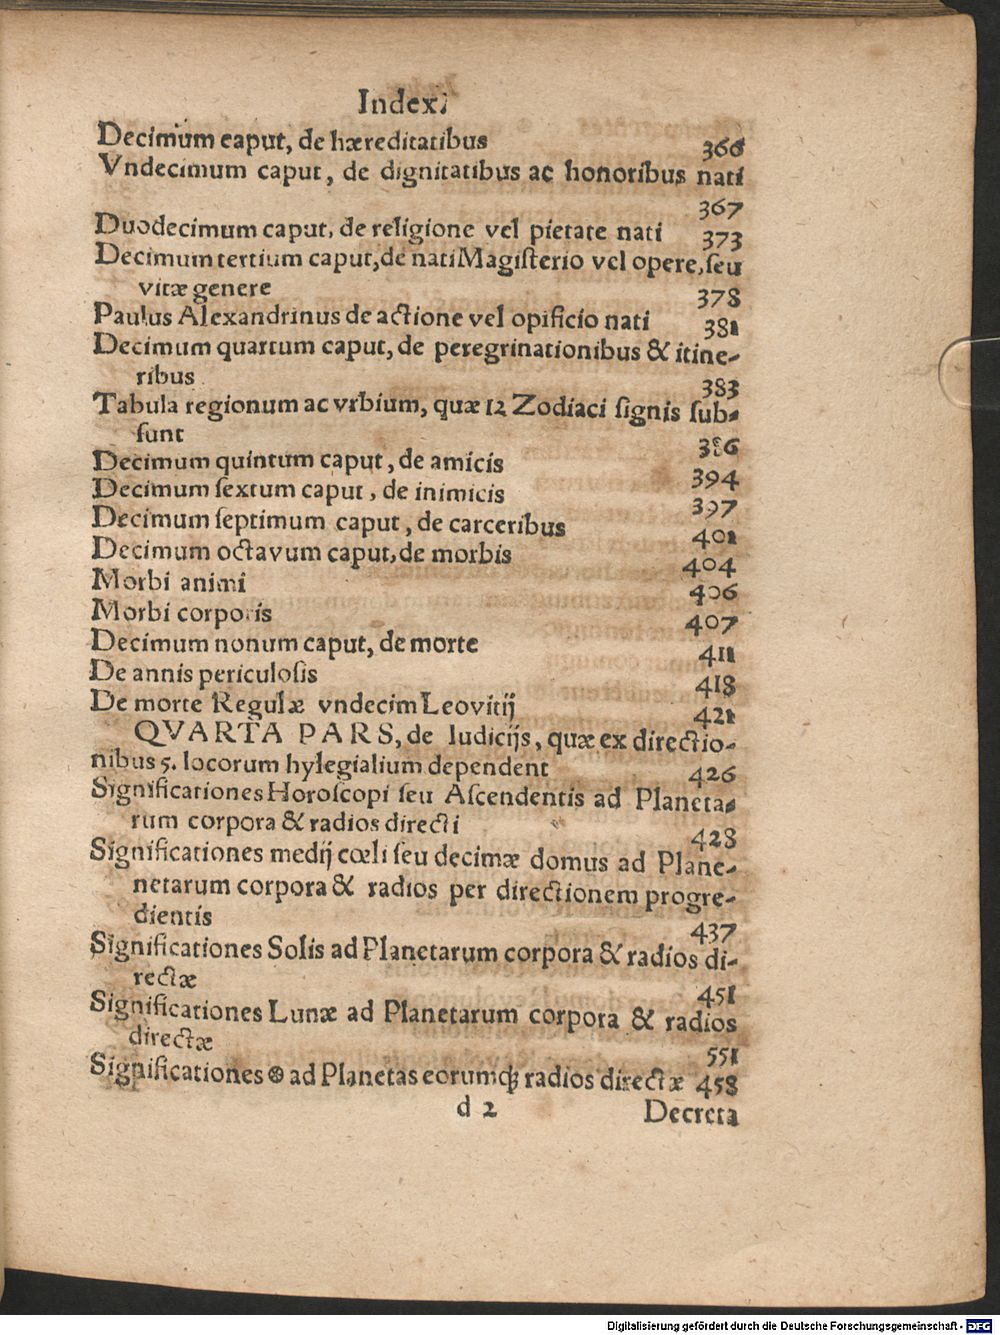 Index.
Decimum caput, de hæreditatibus 366
Vndecimum caput, de dignitatibus ac honoribus nati
367
Duodecimum caput, de religione vel pietate nati 373
Decimum tertium caput, de nati Magiſterio vel opere, ſeu
vitæ genere 378
Paulus Alexandrinus de actione vel opificio nati 381
Decimum quartum caput, de peregrinationibus & itine-
ribus 383
Tabula regionum ac vrbium, quæ 12 Zodiaci ſignis ſub-
ſunt 386
Decimum quintum caput, de amicis 394
Decimum ſextum caput, de inimicis 397
Decimum ſeptimum caput, de carceribus 401
Decimum octavum caput, de morbis 404
Morbi animi 406
Morbi corporis 407
Decimum nonum caput, de morte 411
De annis periculoſis 418
De morte Regulæ vndecim Leovitij 421
QVARTA PARS, de Iudicijs, quæ ex directio-
nibus 5. locorum hylegialium dependent 426
Significationes Horoſcopi ſeu Aſcendentis ad Planeta-
rum corpora & radios directi 428
Significationes medij cœli ſeu decimæ domus ad Plane-
netarum corpora & radios per directionem progre-
dientis 437
Significationes Solis ad Planetarum corpora & radios di-
rectæ 451
Significationes Lunæ ad Planetarum corpora & radios
directæ 551
Significationes ⊗ ad Planetas eorumq́; radios directæ 458
d 2 Decreta
Digitalisierung gefördert durch die Deutsche Forschungsgemeinschaft - DFG